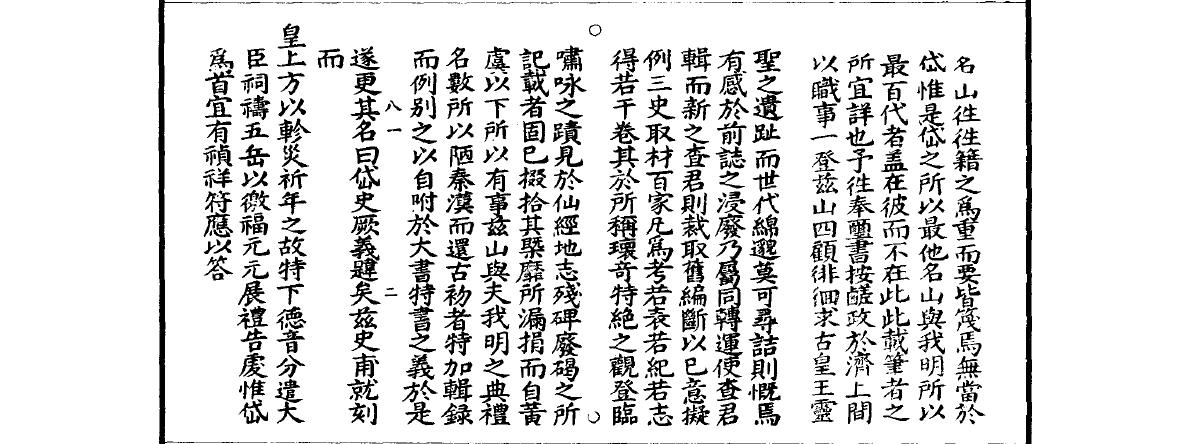 名山徃徃籍之爲重而要皆篾焉無當於
岱惟是岱之所以最他名山與我明所以
最百代者盖在彼而不在此此載筆者之
所宜詳也予徃奉璽書按鹺政於濟上間
以職事一登兹山四顧徘徊求古皇王靈
聖之遺趾而世代綿邈莫可尋詰則慨焉
有感於前誌之浸廢乃屬同轉運使查君
輯而新之查君則裁取舊編斷以已意擬
例三史取材百家凡爲考若表若紀若志
得若干卷其於所稱瓌竒特絶之觀登臨
嘯咏之蹟見於仙經地志殘碑廢碣之所
記載者固已掇拾其槩靡所漏捐而自黄
虞以下所以有事兹山與夫我明之典禮
名數所以陋秦漢而還古初者特加輯録
而例別之以自附於大書特書之義於是
八一
二
遂更其名曰岱史厥義韙矣兹史甫就刻
而
皇上方以軫災祈年之故特下德音分遣大
臣祠禱五岳以徼福元元展禮告虔惟岱
爲首宜有禎祥符應以答